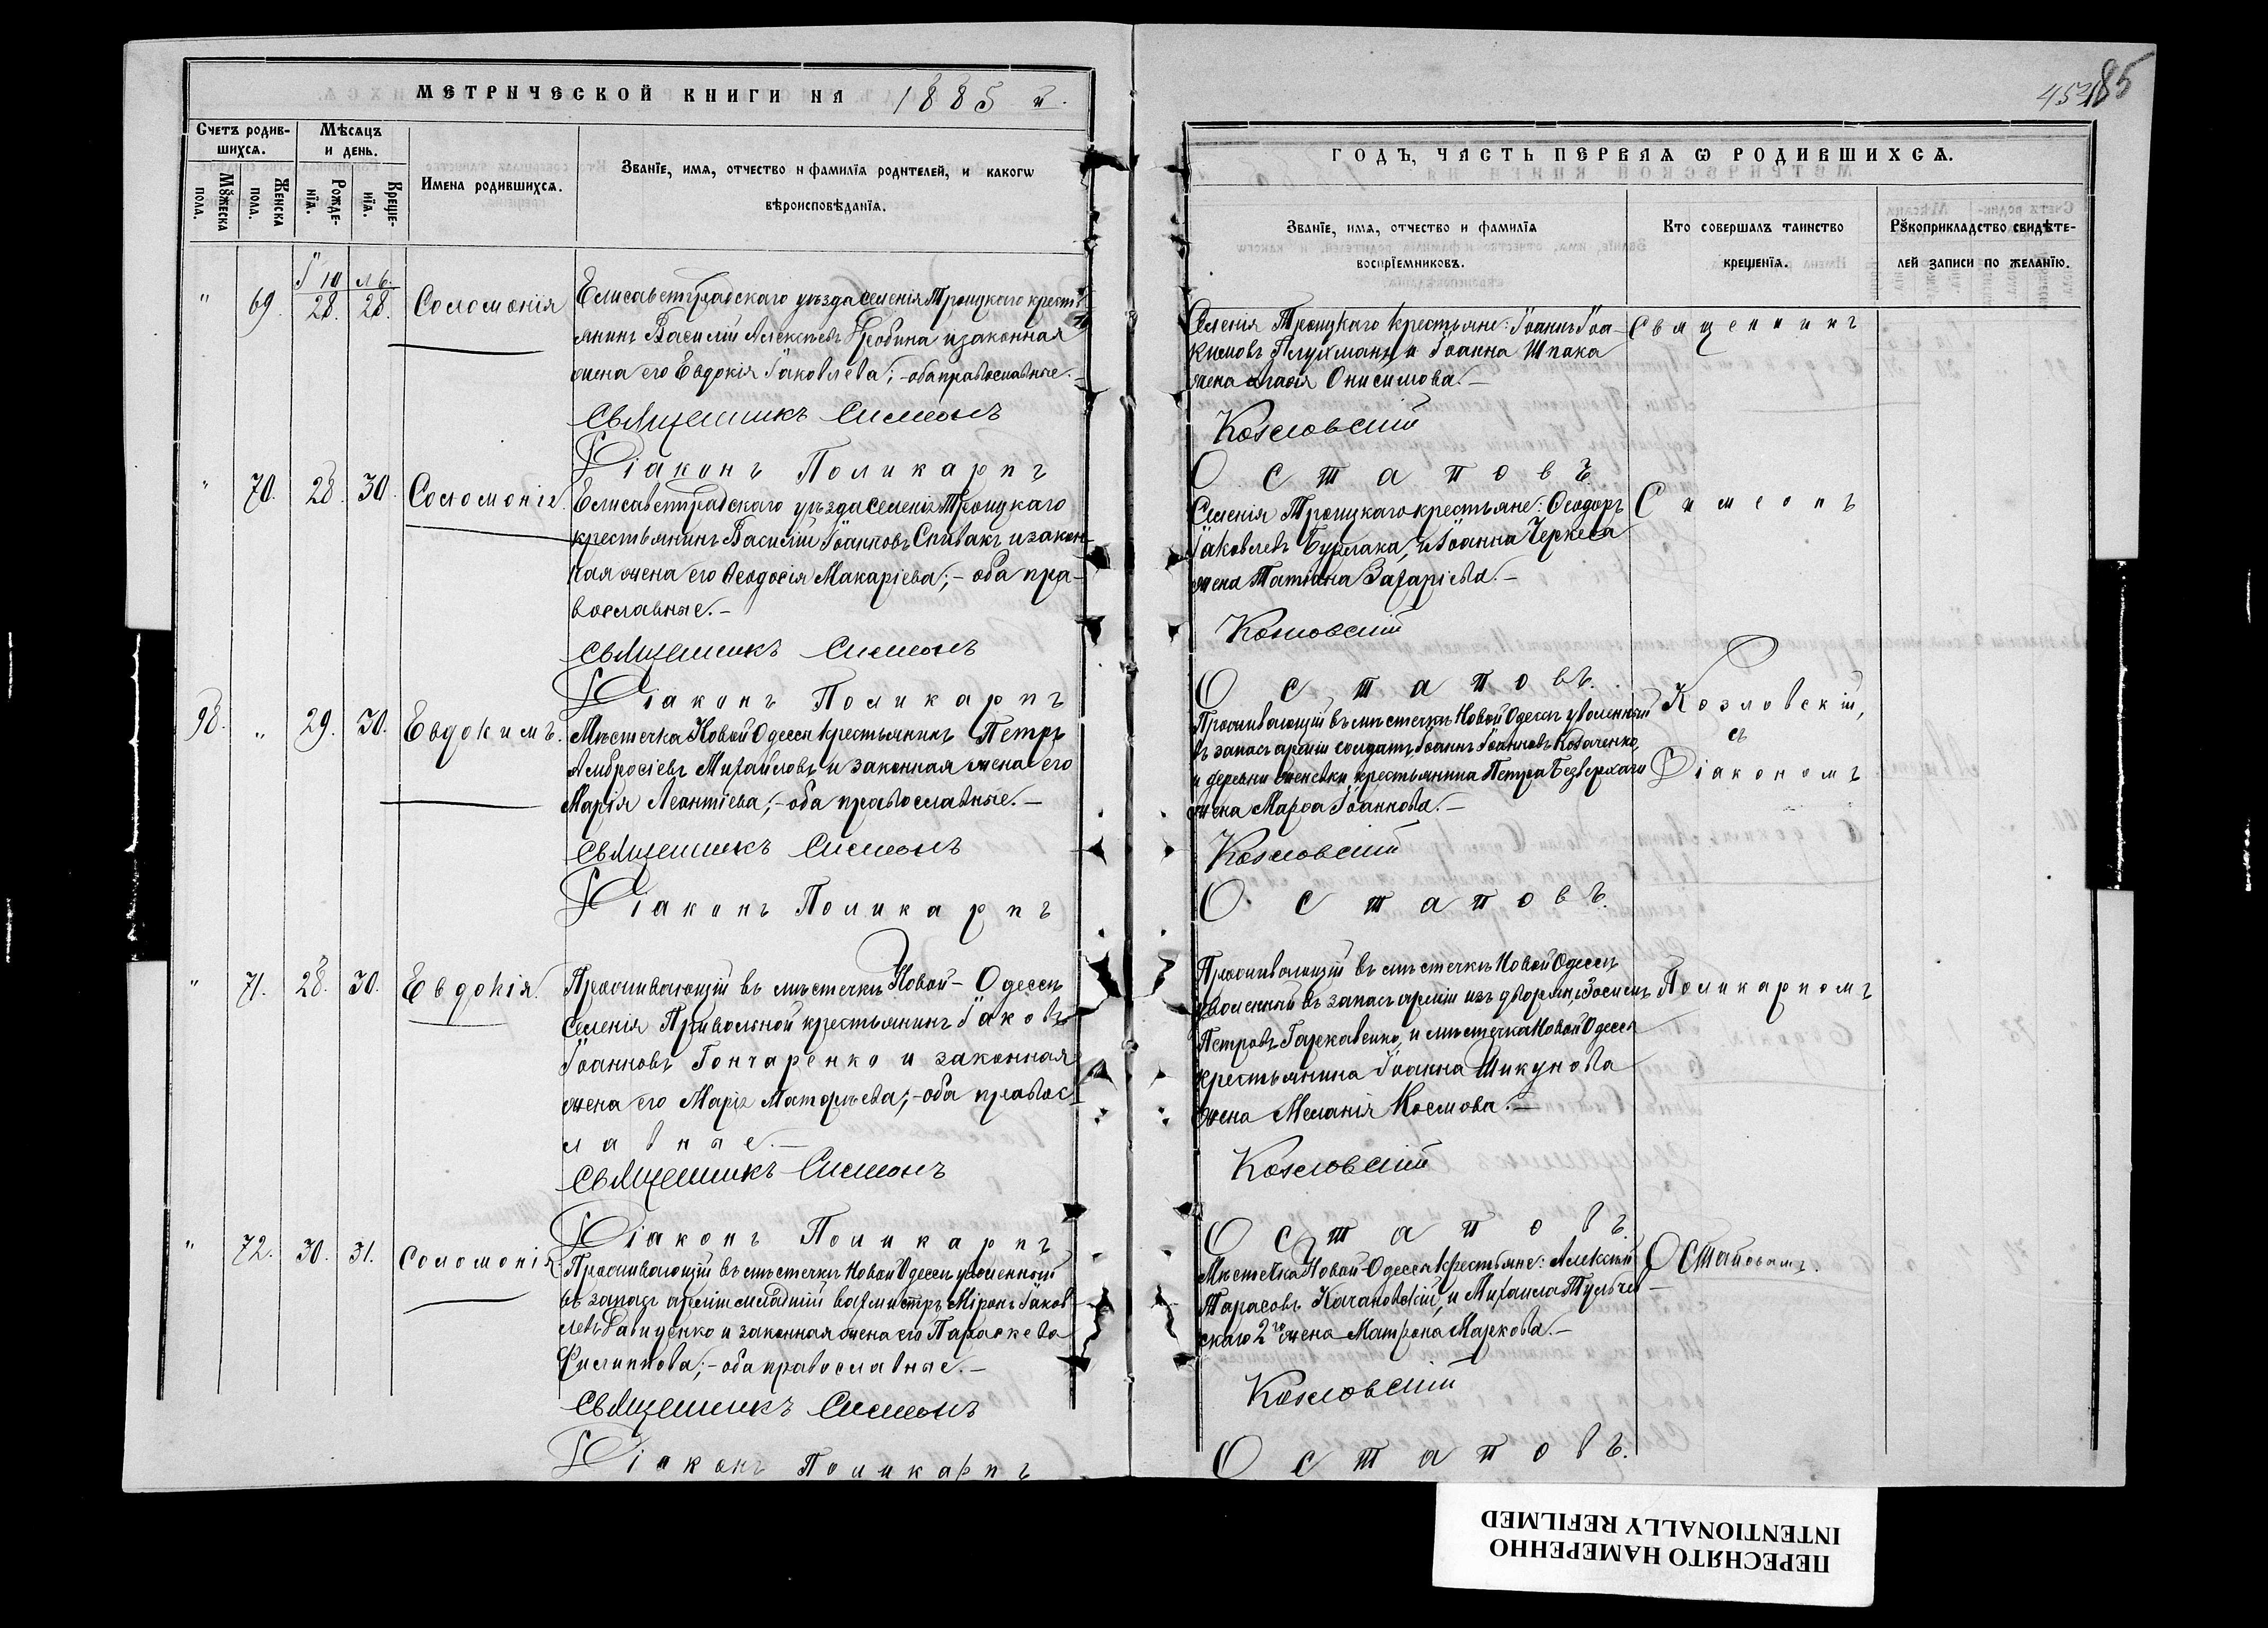 МЕТРИЧЕСКОЙ КНИГИ НА 1885 й.
Счетъ родив-
шихся.
Мѣсяцъ
и день.
Мꙋжеска
пола.
Женска
пола.
Рожде-
нїя.
Креще-
нїя.
Имена родившихся.
Званїе, имя, отчество и фамилїя родителей, и какогѡ
вѣроисповѣданїя.
Іюль.
" 69. 28. 28. Соломонія
Елисаветградскаго уѣзда селенія Троицкаго кресть-
янинъ Василій Алексѣевъ и законная
жена его Евдокія Іаковлева; - оба православные. -
Священникъ Симеонъ
Діаконъ Поликарпъ
" 70. 28. 30. Соломонія.
Елисаветградскаго уѣзда селенія Троицкаго
крестьянинъ Василій Іоанновъ Спивакъ и закон-
ная жена его Ѳеодосія Макаріева; - оба пра-
вославные. -
Священникъ Симеонъ
Діаконъ Поликарпъ
98. " 29. 30. Евдокимъ.
Мѣстечка Новой Одессы крестьянинъ Петръ
Амвросіевъ Михайловъ и законная жена его
Марія Леонтіева; - оба православные. -
Священникъ Симеонъ
Діаконъ Поликарпъ
" 71. 28. 30. Евдокія.
Проживающій въ мѣстечкѣ Новой-Одессѣ
селенія Привольной крестьянинъ Іаковъ
Іоанновъ Гончаренко и законная
жена его Марія Матѳѣева; - оба правос-
лавные. -
Священникъ Симеонъ
Діаконъ Поликарпъ
" 72. 30. 31. Соломонія
Проживающій въ мѣстечкѣ Новой Одессѣ уволенный
въ запасъ арміи младшій вахмистръ Міронъ Іаков-
левъ Давиденко и законная жена его Параскева
Филиппова; - оба православные. -
Священникъ Симеонъ
Діаконъ Поликарпъ
453 185
ГОДЪ, ЧАСТЬ ПЕРВАЯ Ѡ РОДИВШИХСЯ.
Званїе, имя, отчество и фамилїя
воспрїемниковъ.
Кто совершалъ таинство
крещенїя.
Рꙋкоприкладство свидѣте-
лей записи по желанїю.
Селенія Троицкаго крестьяне: Іоаннъ Іоа-
кимовъ и Іоанна Шпака
жена Агаѳія Онисимова. -
Священникъ
Козловскій
Остаповъ.
Селенія Троицкаго крестьяне: Ѳеодоръ
Іаковлевъ Бурлака, и Іоанна Черкеса
жена Татіана Захаріева. -
Симеонъ
Козловскій
Остаповъ.
Проживающій въ мѣстечкѣ Новой Одессѣ уволенный
въ запасъ арміи солдатъ, Іоаннъ Іоанновъ Козаченко,
и деревни крестьянина Петра Безверхаго
жена Марѳа Іоаннова. -
Козловскій,
съ
Діакономъ
Козловскій
Остаповъ.
Проживающій въ мѣстечкѣ Новой Одессѣ
уволенный въ запасъ арміи изъ дворянъ, Зосимъ
Петровъ Гаркавенко, и мѣстечка Новой Одессы
крестьянина Іоанна Шикунова
жена Меланія Космова. -
Поликарпомъ
Козловскій
Остаповъ.
Мѣстечка Новой-Одессы крестьяне: Алексѣй
Тарасовъ Качановскій, и Михаила Тульчев-
скаго 2го жена Матрона Маркова. -
Остаповымъ.
Козловскій
Остаповъ.
ПЕРЕСНЯТО НАМЕРЕННО
INTENTIONALLY REFILMED